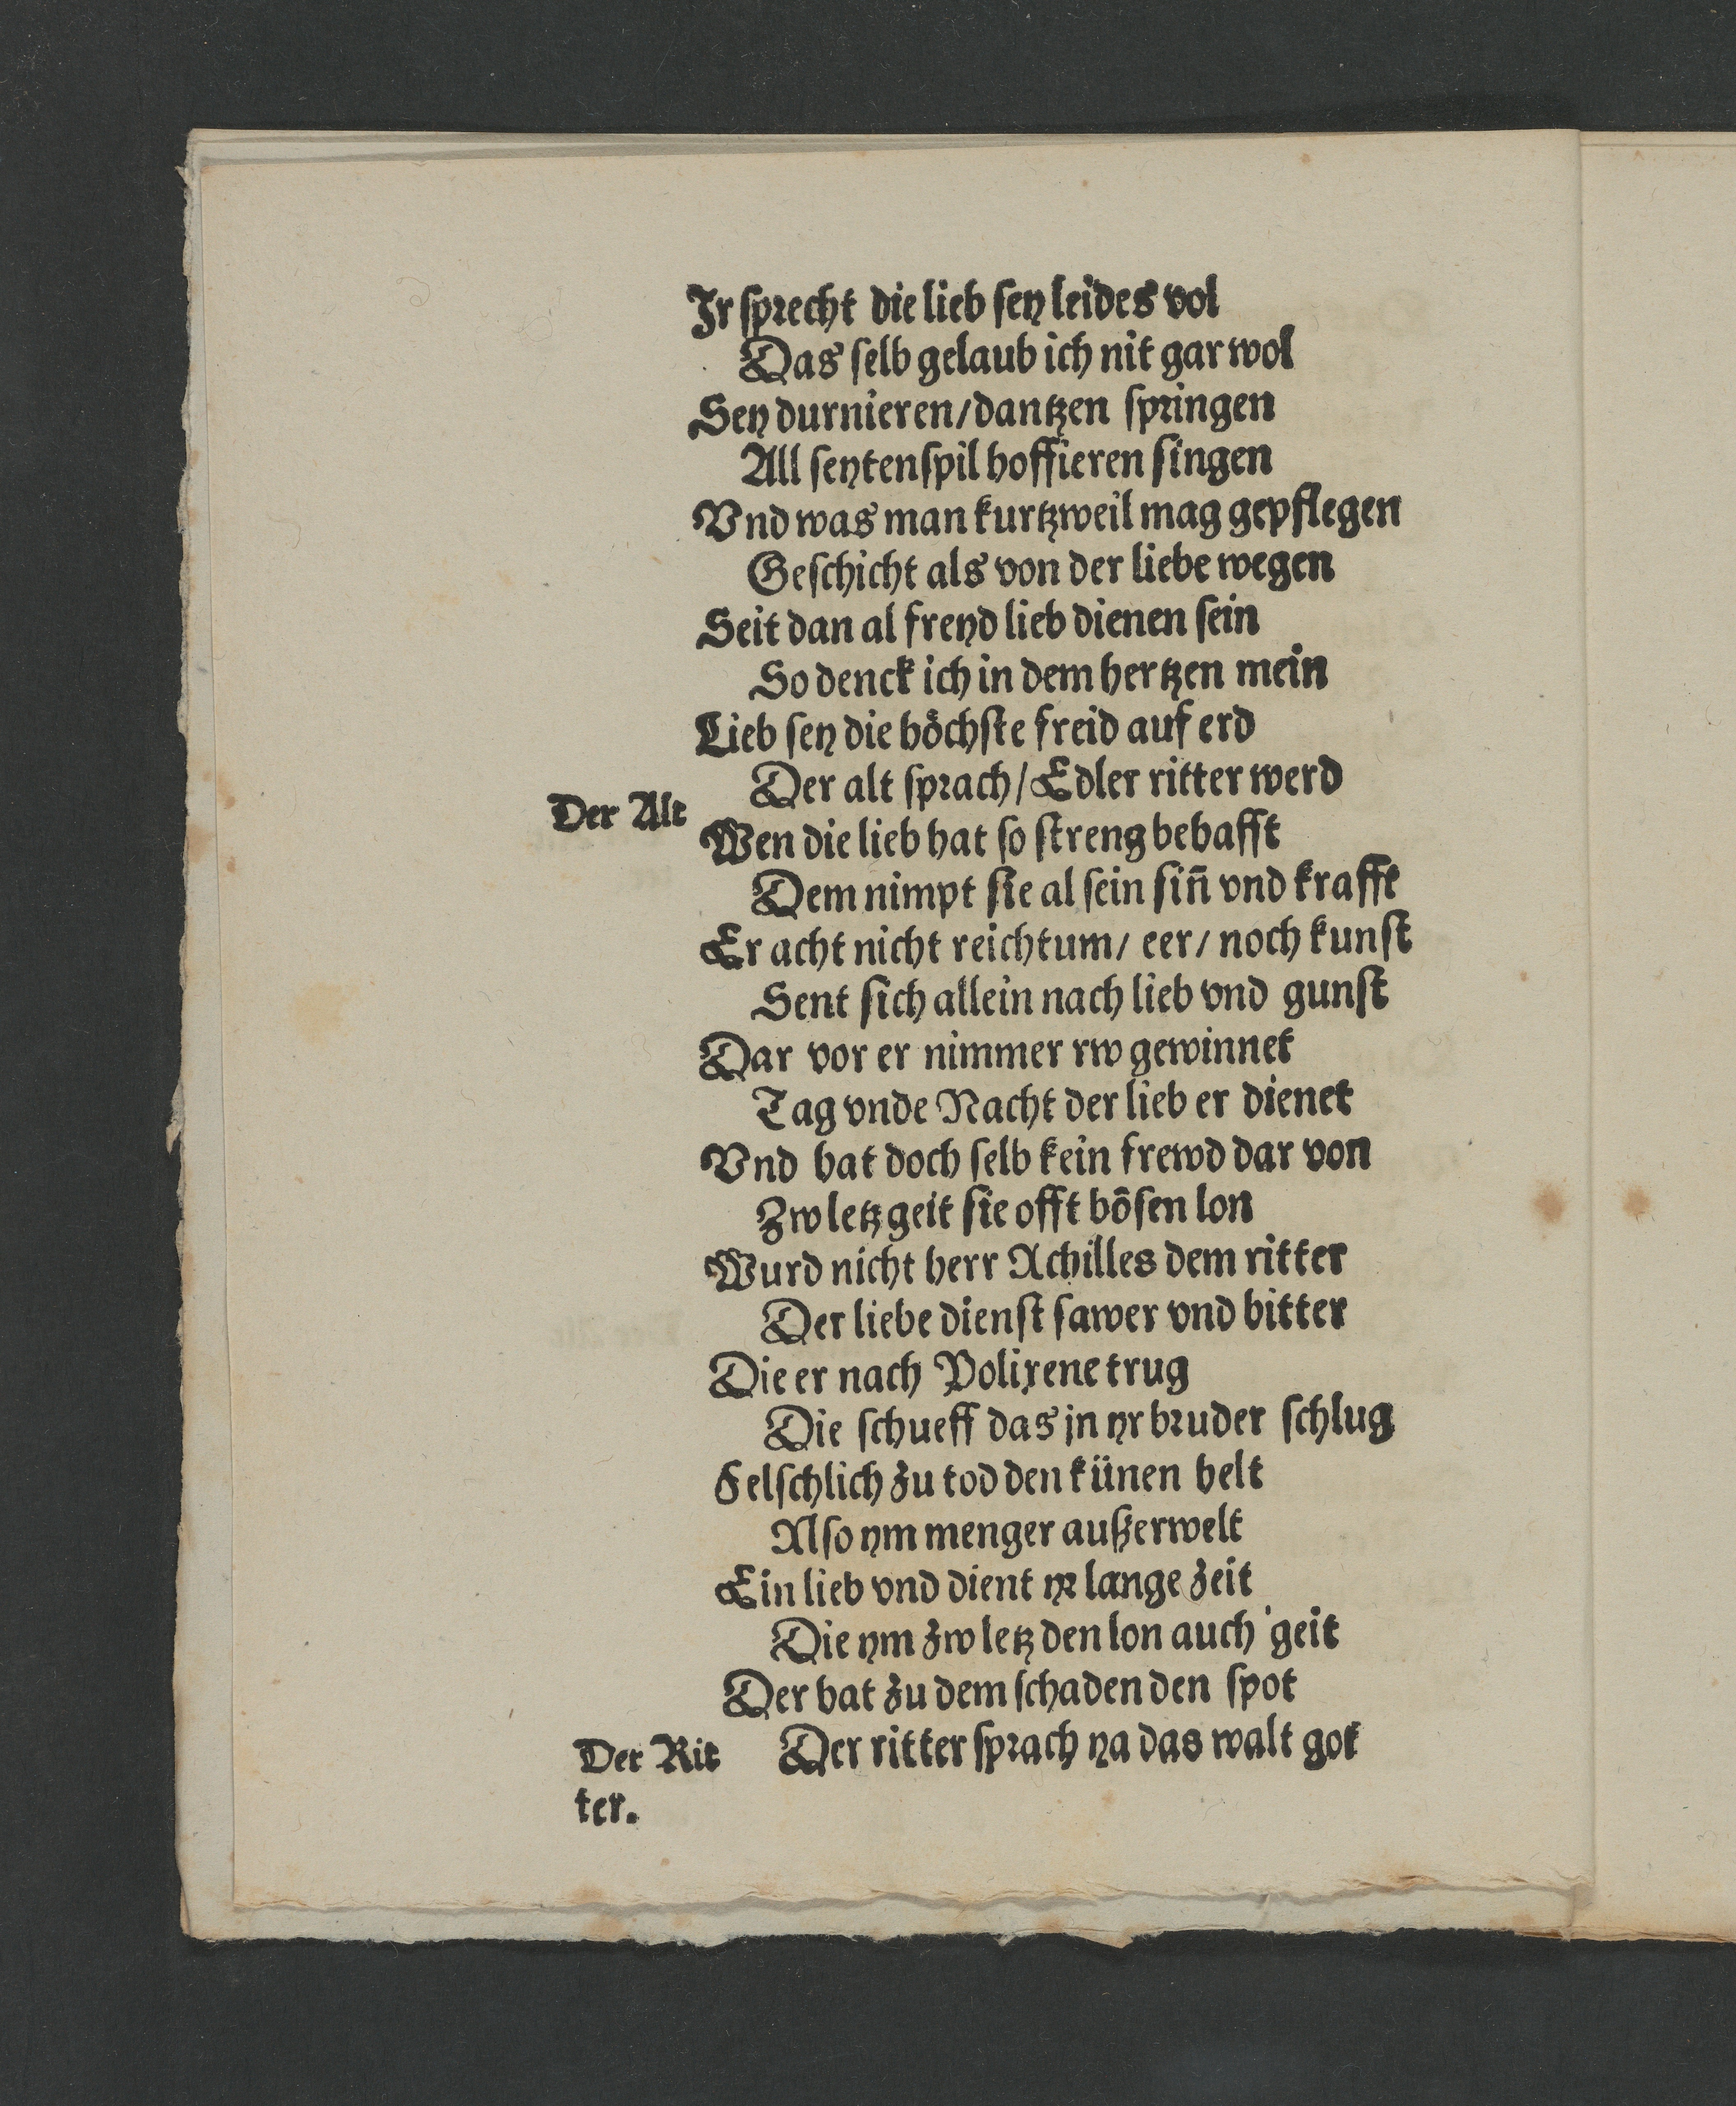 Ir sprecht die lieb sey leides vol
Das selb gelaub ich nit gar wol
Sey durnieren/dantzen springen
All seytenspil hoffieren singen
Vnd was man kurtzweil mag gepflegen
Geschicht als von der liebe wegen
Seit dan al freyd lieb dienen sein
So denck ich in dem hertzen mein
Lieb sey die höchste freid auf erd
Der alt sprach/Edler ritter werd
Der Alt
Wen die lieb hat so streng behafft
Dem nimpt sie al sein siñ vnd krafft
Er acht nicht reichtum/ eer/ noch kunst
Sent sich allein nach lieb vnd gunst
Dar vor er nimmer rw gewinnet
Tag vnde Nacht der lieb er dienet
Vnd hat doch selb kein frewd dar von
Zw letz geit sie offt bösen lon
Wurd nicht herr Achilles dem ritter
Der liebe dienst sawer vnd bitter
Die er nach Polixene trug
Die schueff das jn yr bruder schlug
Felschlich zu tod den künen helt
Also ym menger außerwelt
Ein lieb vnd dient yr lange zeit
Die ym zw letz den lon auch geit
Der hat zu dem schaden den spot
Der Rit
ter.
Der ritter sprach ya das walt got